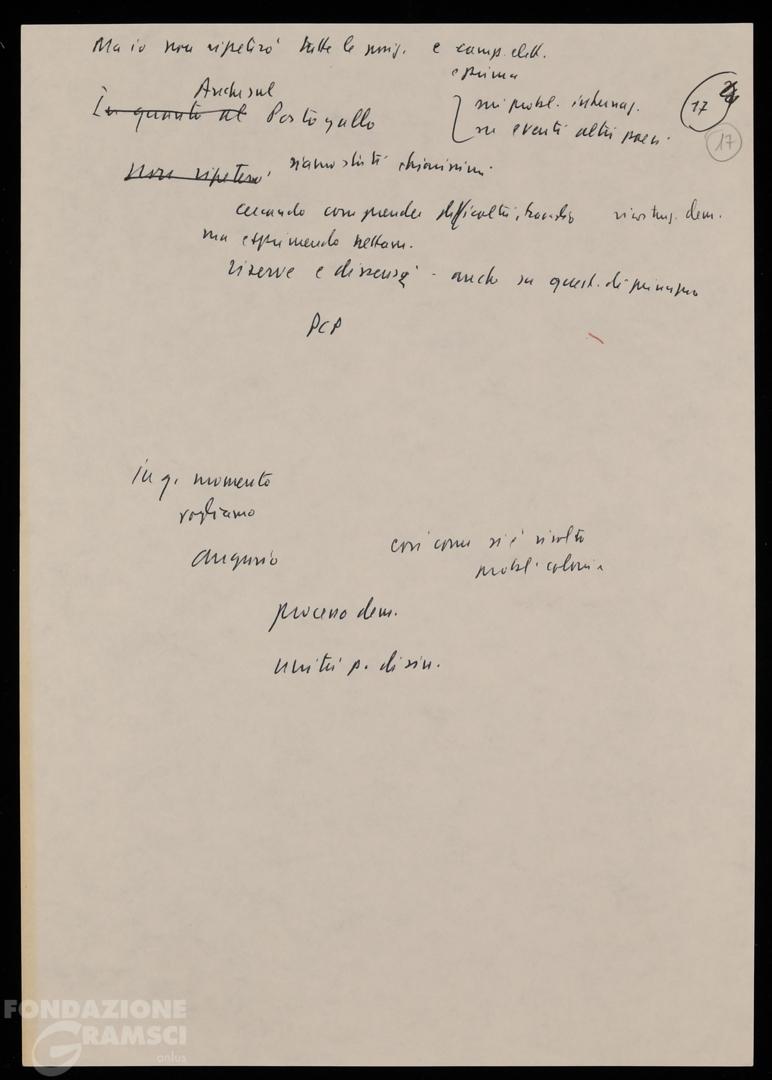 Ma io non ripeterò tutte le posiz. e camp. elett.
e prima
Anche sul
In quanto al Portogallo
sui probl. internaz.
su eventi altri paesi
17
17
Non ripeterò, siamo stati chiarissimi
cercando comprendere difficoltà, travaglio ricostruz. dem.
ma esprimendo nettam.
riserve e dissensi - anche su quest. di principio
PCP
in q. momento
vogliamo
augurio
così come si è risolto
probl. colonia
processo dem.
unità p. di sin.
FONDAZIONE
GRAMSCI
onlus